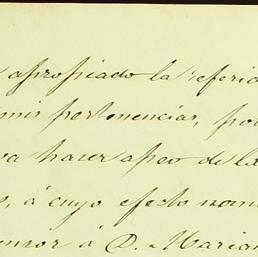 apropiado la referid
mis pertenencias, por
va hacer apeo de la
s, á cuyo efecto nom
ensor á D. Marian